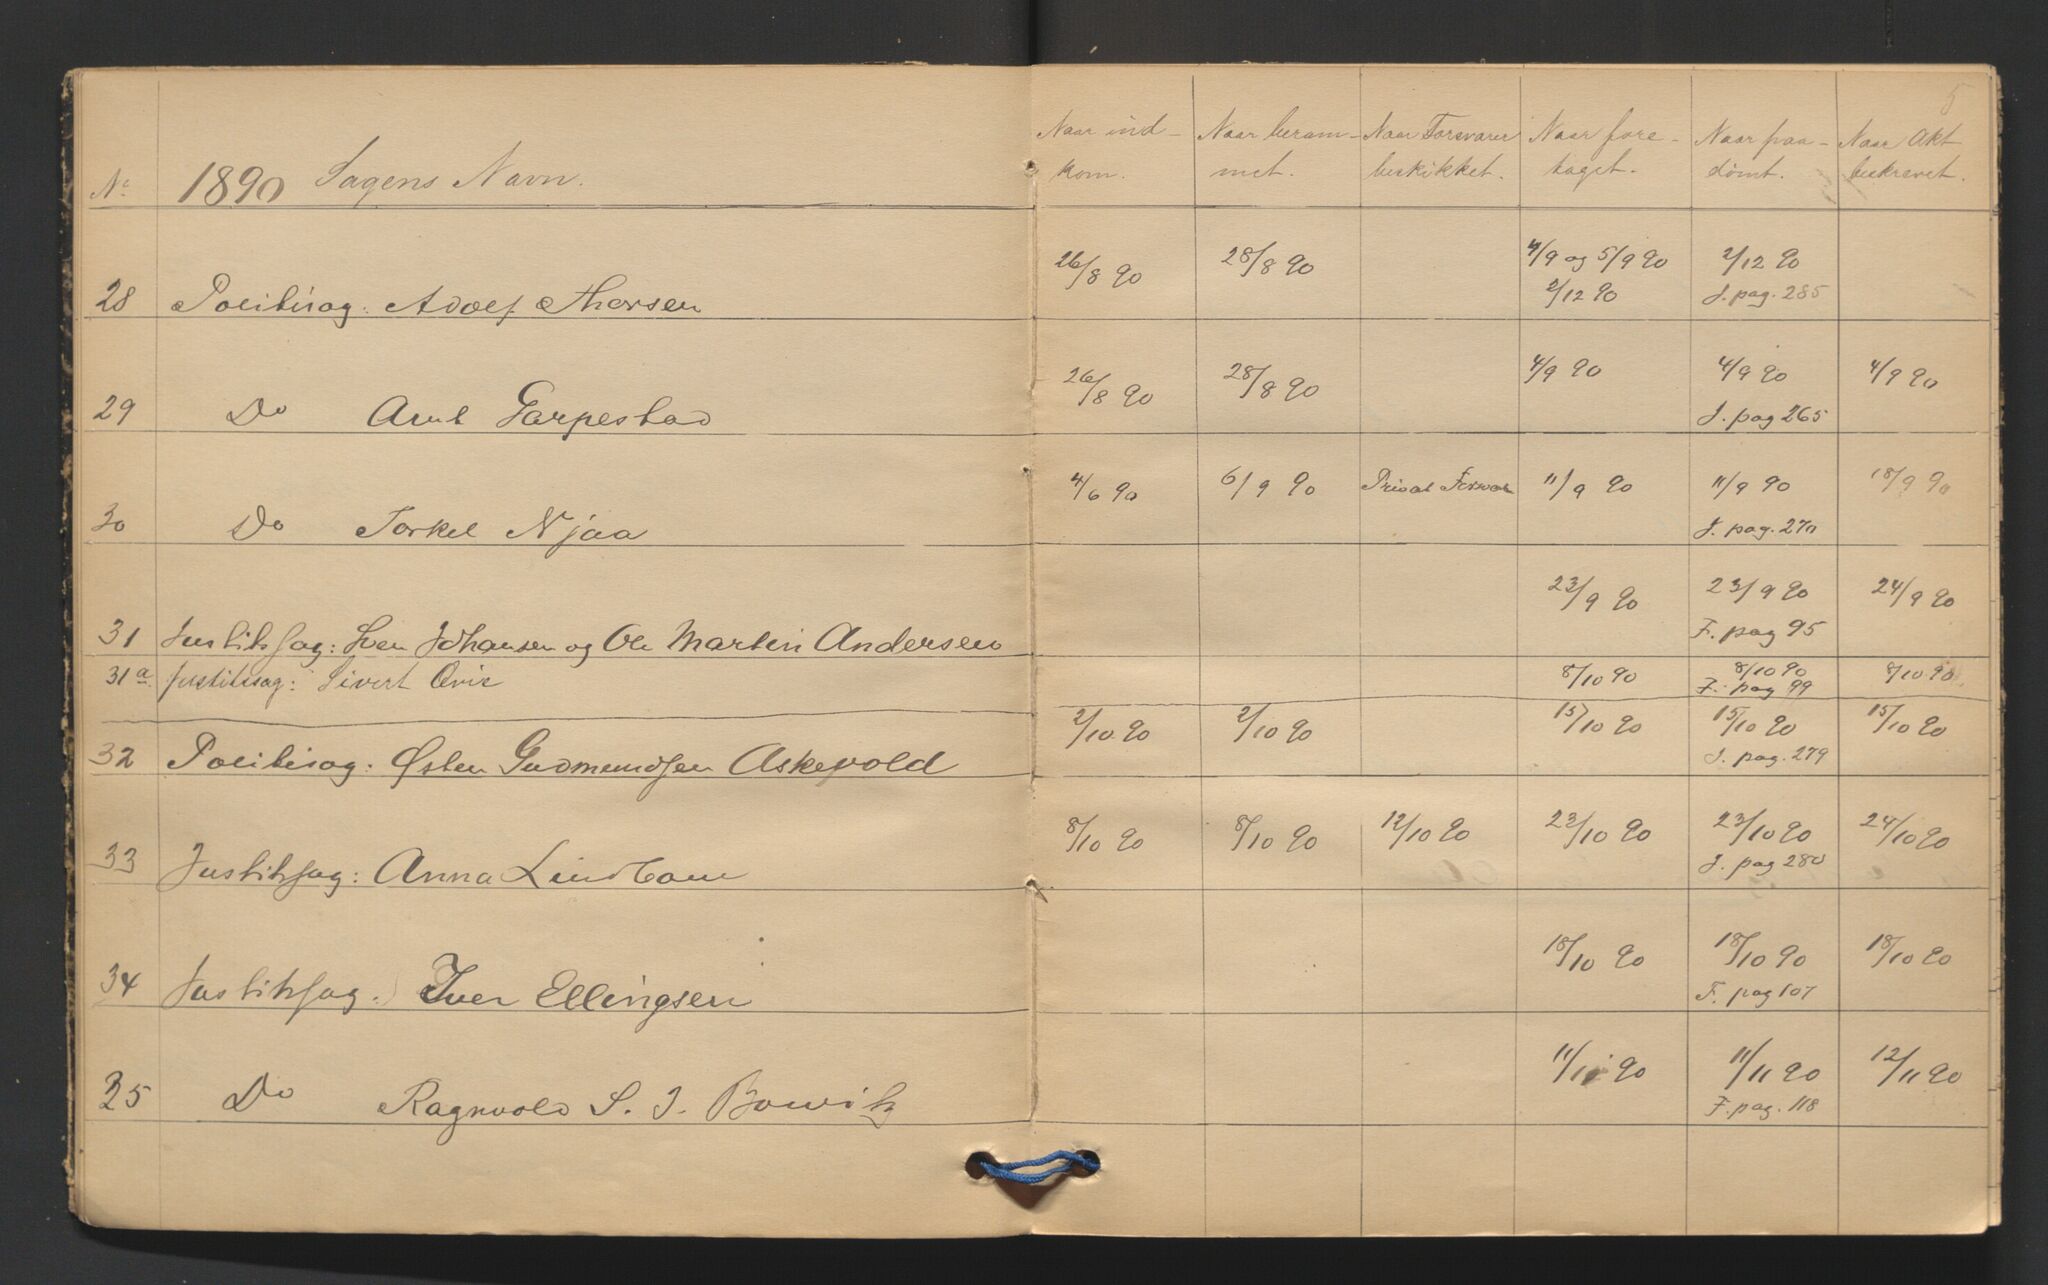 5
Nº 1890 Sagens Navn. Naar ind- Naar beram- Naar Forsvarer Naar fore- Naar paa- Naar Akt
kom. met. beskikket. taget. dömt. beskrevet.
28 Politisag: Adolf Thorsen 26/8 90 28/8 90 4/9 og 5/9 90 2/12 90
2/12 90 J. pag. 285
29 Do Arnt Garpestad 26/8 90 28/8 90 4/9 90 4/9 90 4/9 90
J. pag 265
30 Do Torkel Njaa 4/6 90 6/9 90 Privat Forsvar 11/9 90 11/9 90 18/9 90
J. pag. 270
31 Justitssag: Sven Johansen og Ole Martin Andersen 23/9 90 23/9 90 24/9 90
F. pag 95
31a. Justitssag: Sivert Qvie 8/10 90 8/10 90 8/10 90
F. pag 99
32 Politisag: Østen Gudmundsen Askevold 2/10 90 2/10 90 15/10 90 15/10 90 15/10 90
J. pag. 279
33 Justitssag: Anna 8/10 90 8/10 90 12/10 90 23/10 90 23/10 90 24/10 90
J. pag 280
34 Justitssag: Iver Ellingsen 18/10 90 18/10 90 18/10 90
F. pag 107
35 Do Ragnvald S. J. 11/11 90 11/11 90 12/11 90
F. pag. 118